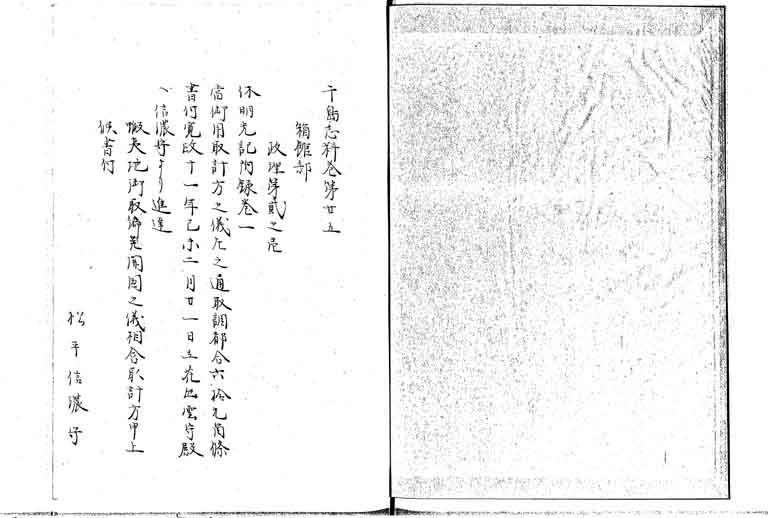 千島志料巻第廿五
箱館部
政理第貳之壱
休明光記附録巻一
當御用取計方之儀左之通取調都合六拾九箇條
書付寛政十一年己未二月廿一日立花出雲守殿
へ信濃守より進達
蝦夷地御取締并開国之儀相含取計方申上
候書付
松平信濃守